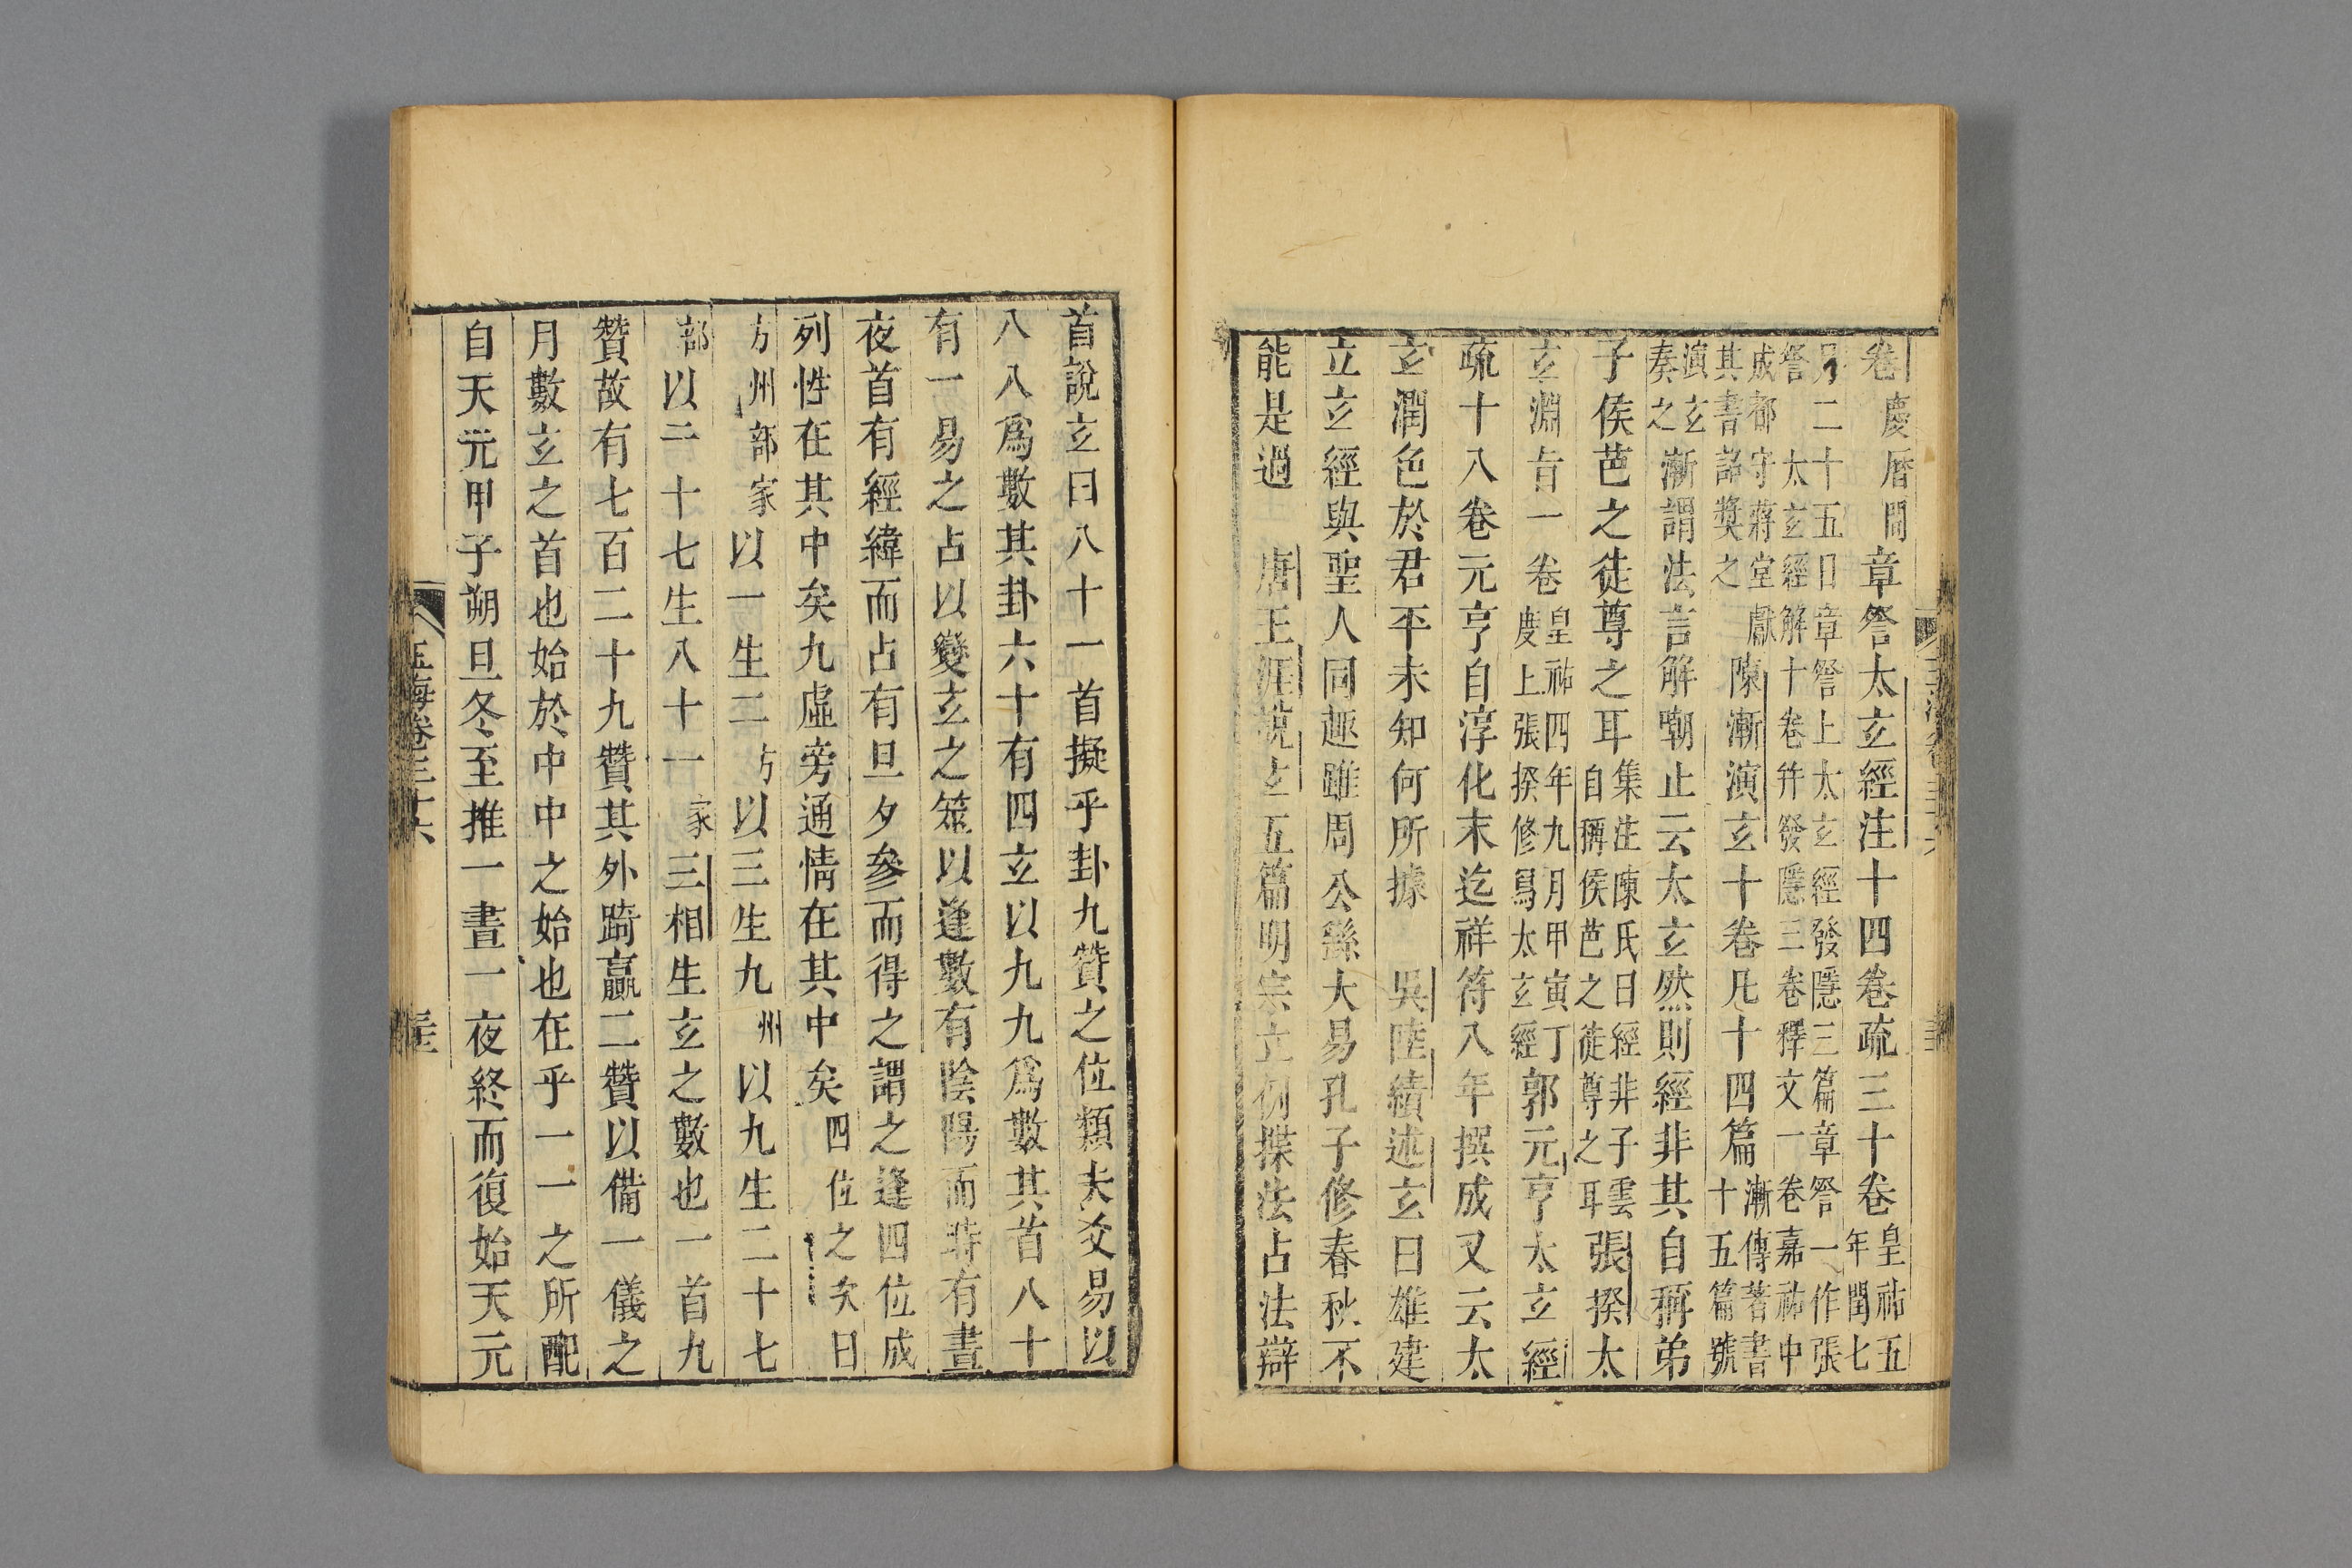 卷慶厤間章詧太玄經注十四卷疏三十卷皇祐五年閏七
月二十五日章詧上太玄經發隱三篇章詧一作張
詧太玄經解十卷幷發隱三卷釋文一卷嘉祐中
成都守蔣堂獻
其書詔獎之陳漸演玄十卷凡十四篇漸傳著書十五篇號
演玄
奏之漸謂法言解嘲止云太玄然則經非其自稱弟
子侯芭之徒尊之耳集注陳氏曰經非子雲自稱侯芭之徒尊之耳張揆太
玄淵旨一卷皇祐四年九月甲寅丁度上張揆修爲太玄經郭元亨太玄經
疏十八卷元亨自淳化末迄祥符八年撰成又云太
玄潤色於君平未知何所據 吳陸績述玄曰雄建
立玄經與聖人同趣雖周公繇大易孔子修春秋不
能是過 唐王涯說玄五篇明宗立例揲法占法辯
首說玄曰八十一首擬乎卦九贊之位類夫爻易以
八八爲數其卦六十有四玄以九九爲數其首八十
有一易之占以變玄之筮以逢數有陰陽而時有晝
夜首有經緯而占有旦夕參而得之謂之逢四位成
列性在其中矣九虛旁通情在其中矣四位之次曰
方州部家以一生二方以三生九州以九生二十七
部以二十七生八十一家三相生玄之數也一首九
贊故有七百二十九贊其外踦贏二贊以備一儀之
月數玄之首也始於中中之始也在乎一一之所配
自天元甲子朔旦冬至推一晝一夜終而復始天元
玉海卷三十六